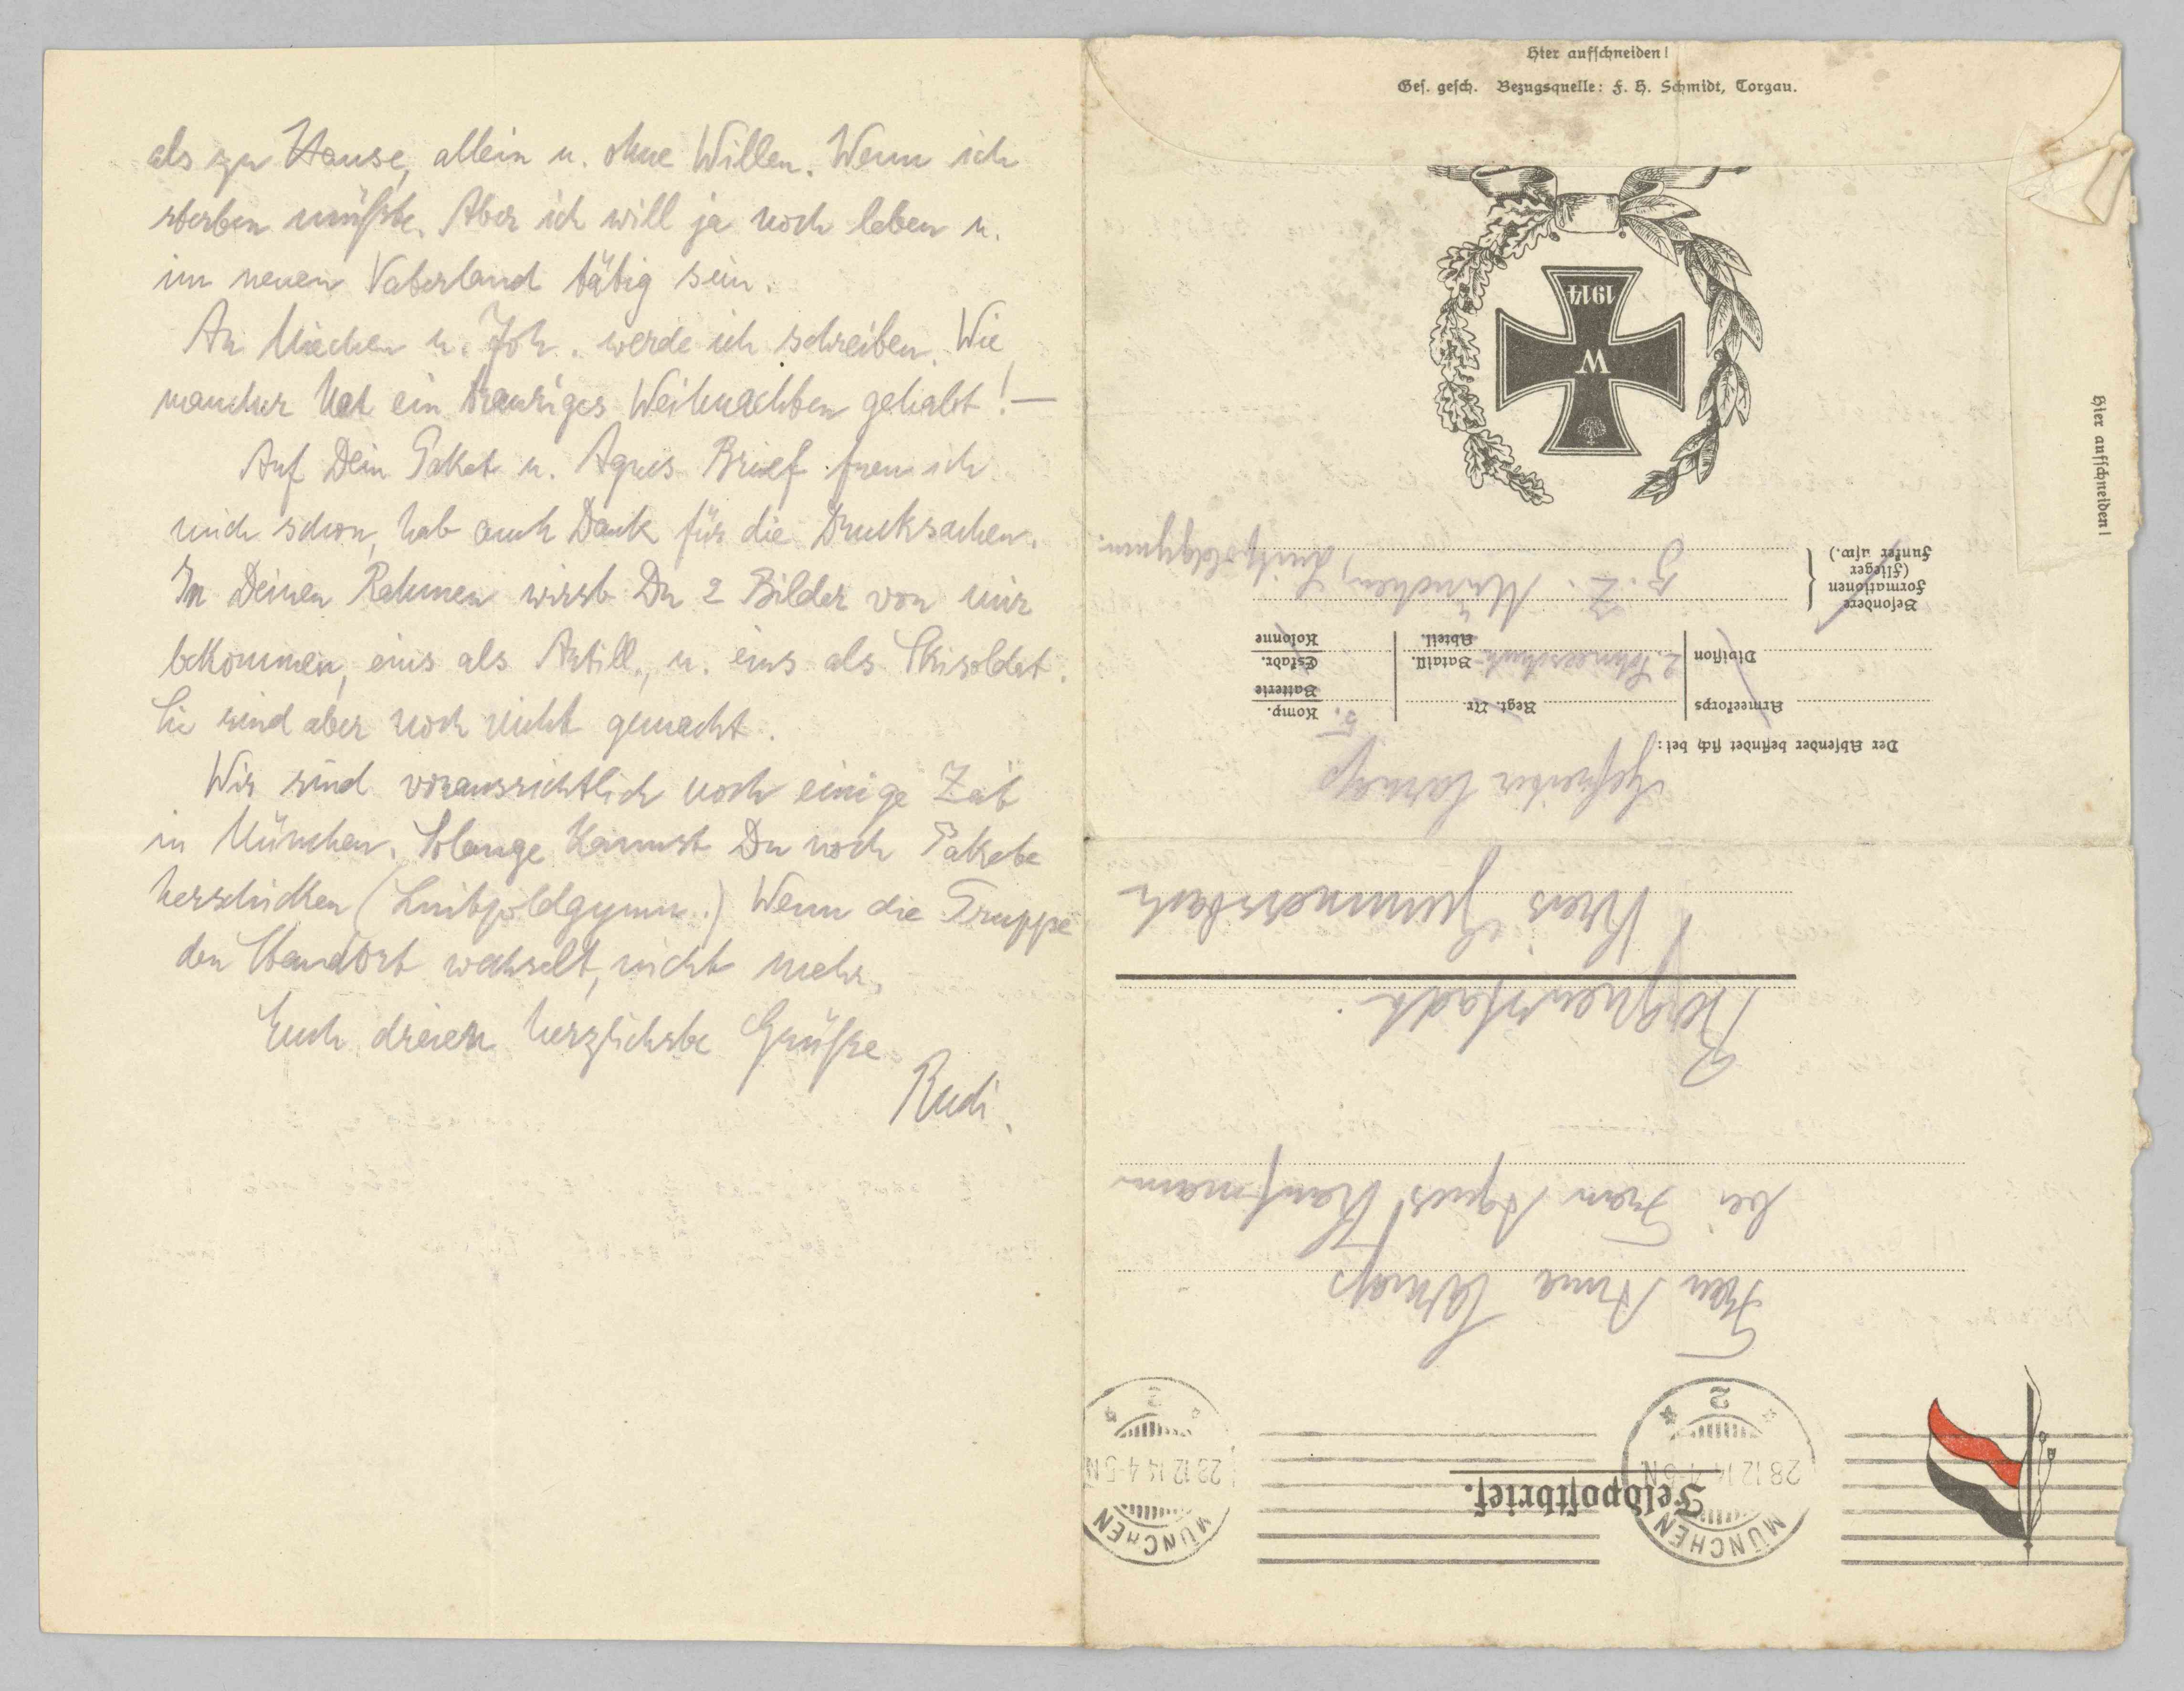 als zu Hause, allein u. ohne Willen. Wenn ich
sterben müßte. Aber ich will ja noch leben u.
im neuen Vaterland tätig sein.
An Miechen u. Joh. werde ich schreiben. Wie
mancher hat ein trauriges Weihnachten gehabt! —
Auf Dein Paket u. Agnes Brief freu ich
mich schon, hab auch Dank für die Drucksachen.
In Deinen Rahmen wirst Du 2 Bilder von mir
bekommen, eins als Artill., u. eins als Skisoldat.
Sie sind aber noch nicht gemacht.
Wir sind voraussichtlich noch einige Zeit
in München. Solange kannst Du noch Pakete
herschicken (Luitpoldgymn.) Wenn die Truppe
den Standort wechselt, nicht mehr.
Euch dreien herzlichste Grüße
Rudi.
Hier aufschneiden!
Ges. gesch. Bezugsquelle: F. H. Schmidt, Torgau.
Hier aufschneiden!
Feldpostbrief.
MÜNCHEN
28 12 14 4-5 N
* 2 *
MÜNCHEN
28 12 14 4-5 N
* 2 *
Frau Anna Carnap
bei Frau Agnes Kaufmann
Bergneustadt
Kreis Gummersbach
Gefreiter Carnap
Der Absender befindet sich bei:
Armeekorps
Regt. Nr.
5. Komp.
Batterie
Division
2. Schneeschuh- Bataill.
Abteil.
Eskadr.
Kolonne
Besondere
Formationen
(Flieger
Funker usw.)
z. Z. München, Luitpoldgymn.
W
1914